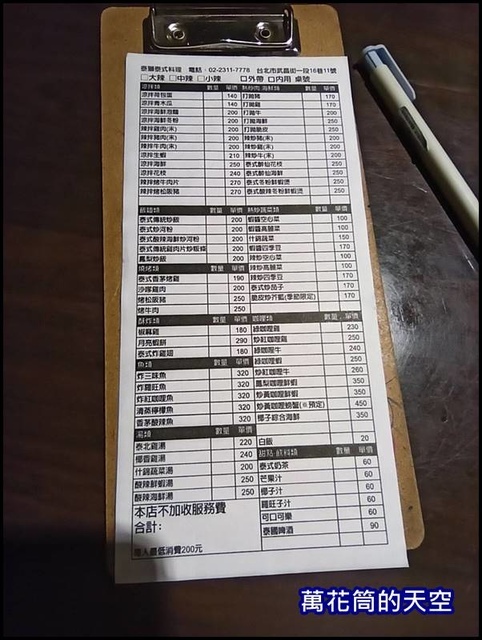 泰獅泰式料理 電話:02-2311-7778 台北市武昌街一段16巷11號
□大辣 □中辣 □小辣 □外帶 □內用 桌號
涼拌類 數量 單價 熱炒肉.海鮮類 數量 單價
涼拌荷包蛋 140 打拋豬 200
涼拌青木瓜 140 打拋雞 200
涼拌海鮮泡麵 200 打拋牛 200
涼拌海鮮冬粉 200 打拋海鮮 250
涼拌雞肉(末) 200 打拋脆皮 250
涼拌豬肉(末) 200 辣炒豬(末) 200
涼拌牛肉(末) 200 辣炒雞(末) 200
涼拌生蝦 210 辣炒牛(末) 200
涼拌海鮮 250 泰式酸仙花枝 250
涼拌花枝 240 泰式酸仙海鮮 250
辣拌烤牛肉片 270 泰式冬粉鮮蝦煲 250
辣拌烤松阪豬 270 泰式酸辣冬粉鮮蝦煲 250
飯麵類 數量 單價 熱炒蔬菜類 數量 單價
泰式傳統炒飯 200 蝦醬空心菜 100
泰式炒河粉 200 蝦醬高麗菜 100
泰式酸辣海鮮炒河粉 200 什錦蔬菜 150
泰式傳統雞肉片炒粄條 200 蝦醬四季豆 170
鳳梨炒飯 200 辣炒空心菜 100
燒烤類 數量 單價 辣炒高麗菜 100
泰式香茅烤雞 190 辣炒四季豆 170
沙嗲雞肉 200 泰式炒茄子 170
烤松阪豬 250 脆皮炒芥藍(季節限定) 170
烤牛肉 250
酥炸類 數量 單價 咖哩類 數量 單價
椒麻雞 180 綠咖哩雞 230
月亮蝦餅 290 炒紅咖哩雞 250
泰式炸雞翅 180 綠咖哩牛 240
魚類 數量 單價 綠咖哩蝦 250
炸三味魚 320 炒紅咖哩牛 260
炸羅旺魚 320 鳳梨咖哩鮮蝦 350
炸紅咖哩魚 320 炒黃咖哩鮮蝦 350
清蒸檸檬魚 320 炒黃咖哩螃蟹(※預定) 450
香茅酸辣魚 320 椰子綜合海鮮 350
湯類 數量 單價
泰北雞湯 220 白飯 20
椰香雞湯 240 甜點.飲料類 數量 單價
什錦蔬菜湯 200 泰式奶茶 60
酸辣鮮蝦湯 250 芒果汁 60
酸辣海鮮湯 250 椰子汁 60
本店不加收服務費 羅旺子汁 60
合計: 可口可樂 60
泰國啤酒 90
每人最低消費200元
萬花筒的天空